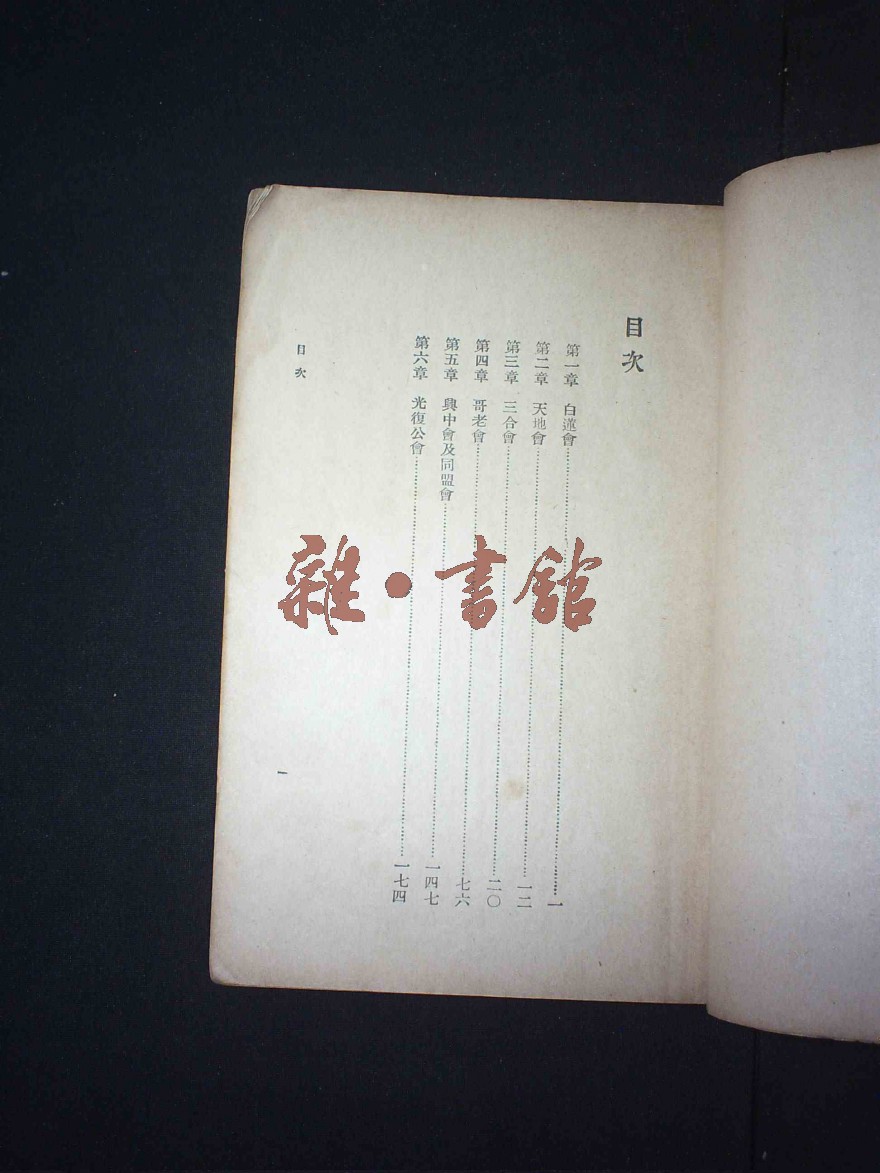 目次
第一章 白蓮會…………一
第二章 天地會…………一二
第三章 三合會…………二〇
第四章 哥老會…………七六
第五章 興中會及同盟會…………一四七
第六章 光復公會…………一七四
目次
一
雜·書館